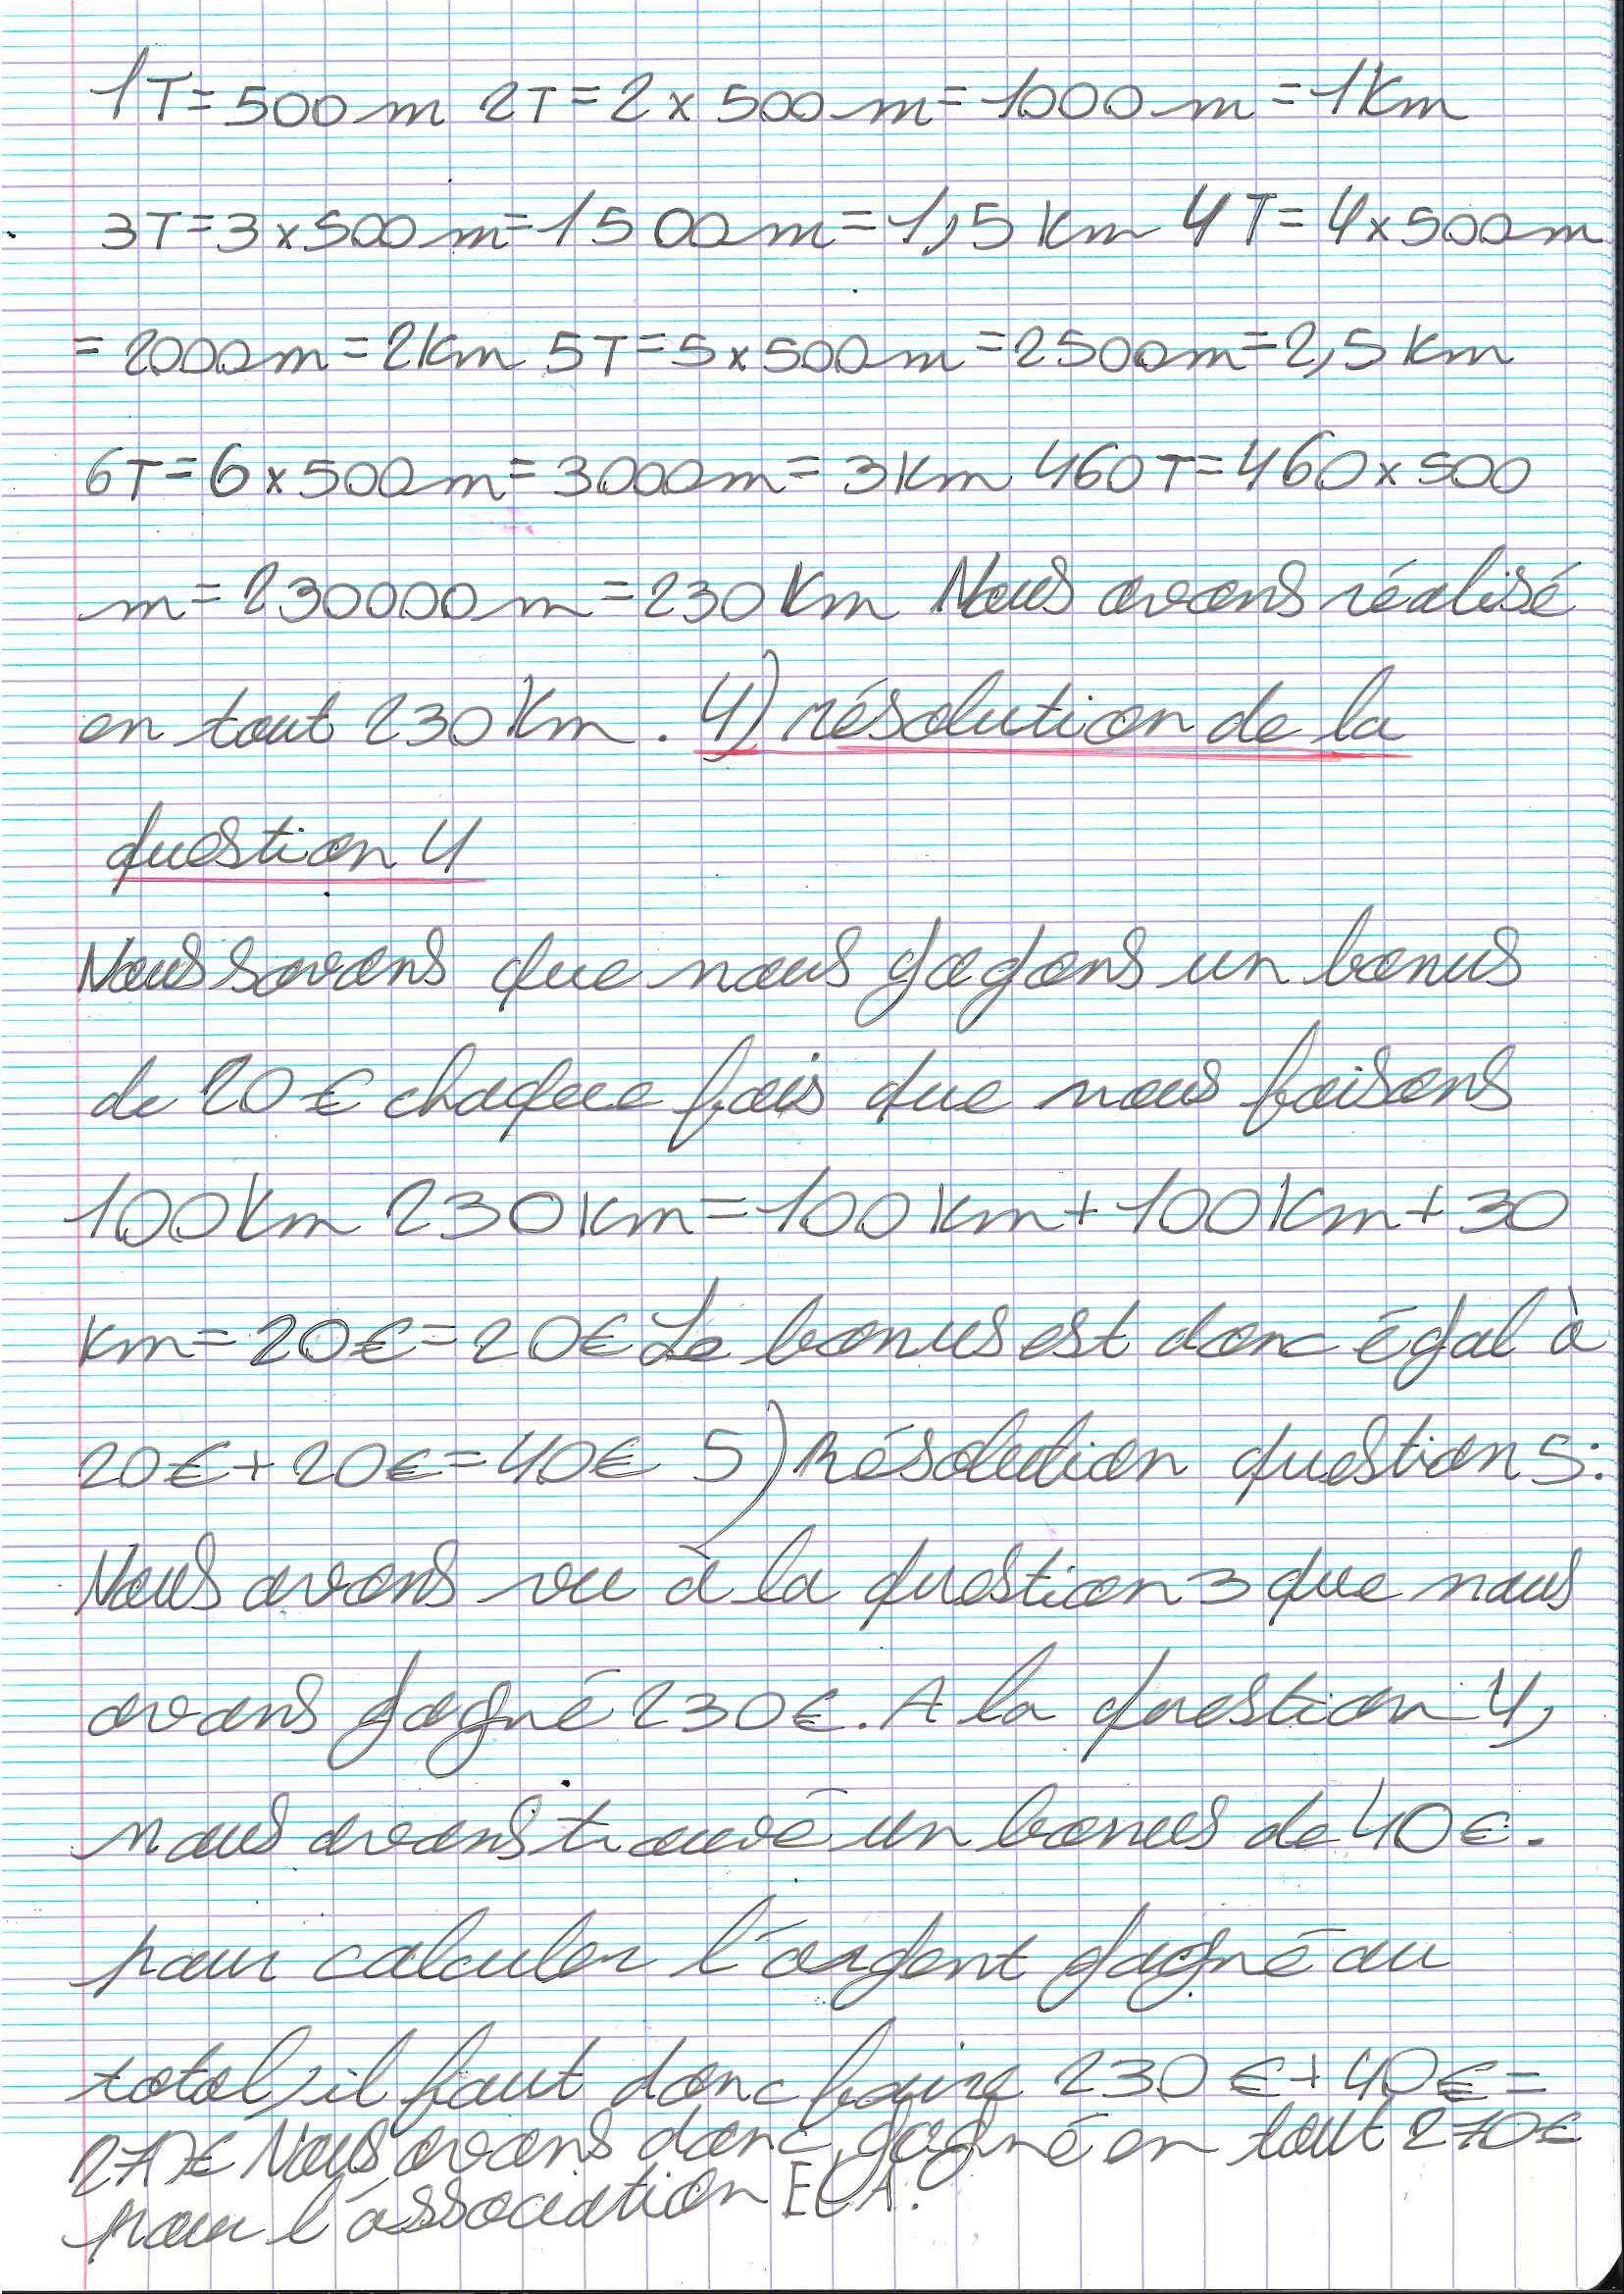 1T = 500 m 2T = 2 x 500 m = 1000 m = 1 Km
3T = 3 x 500 m = 1500 m = 1,5 Km 4T = 4 x 500 m
= 2000 m = 2 Km 5T = 5 x 500 m = 2500 m = 2,5 Km
6T = 6 x 500 m = 3000 m = 3 Km 460T = 460 x 500
m = 230000 m = 230 Km Nous avons réalisé
en tout 230 Km. 4) résolution de la
question 4
Nous savons que nous gagons un bonus
de 20 € chaque fois que nous faisons
100 Km 230 Km = 100 Km + 100 Km + 30
Km = 20 € = 20 € Le bonus est donc égal à
20 € + 20 € = 40 € 5) Résolution question 5:
Nous avons vu à la question 3 que nous
avons gagné 230 €. A la question 4,
nous avons trouvé un bonus de 40 €.
pour calculer l'argent gagné au
total, il faut donc faire 230 € + 40 € =
270 € Nous avons donc gagné en tout 270 €
pour l'association ELA.